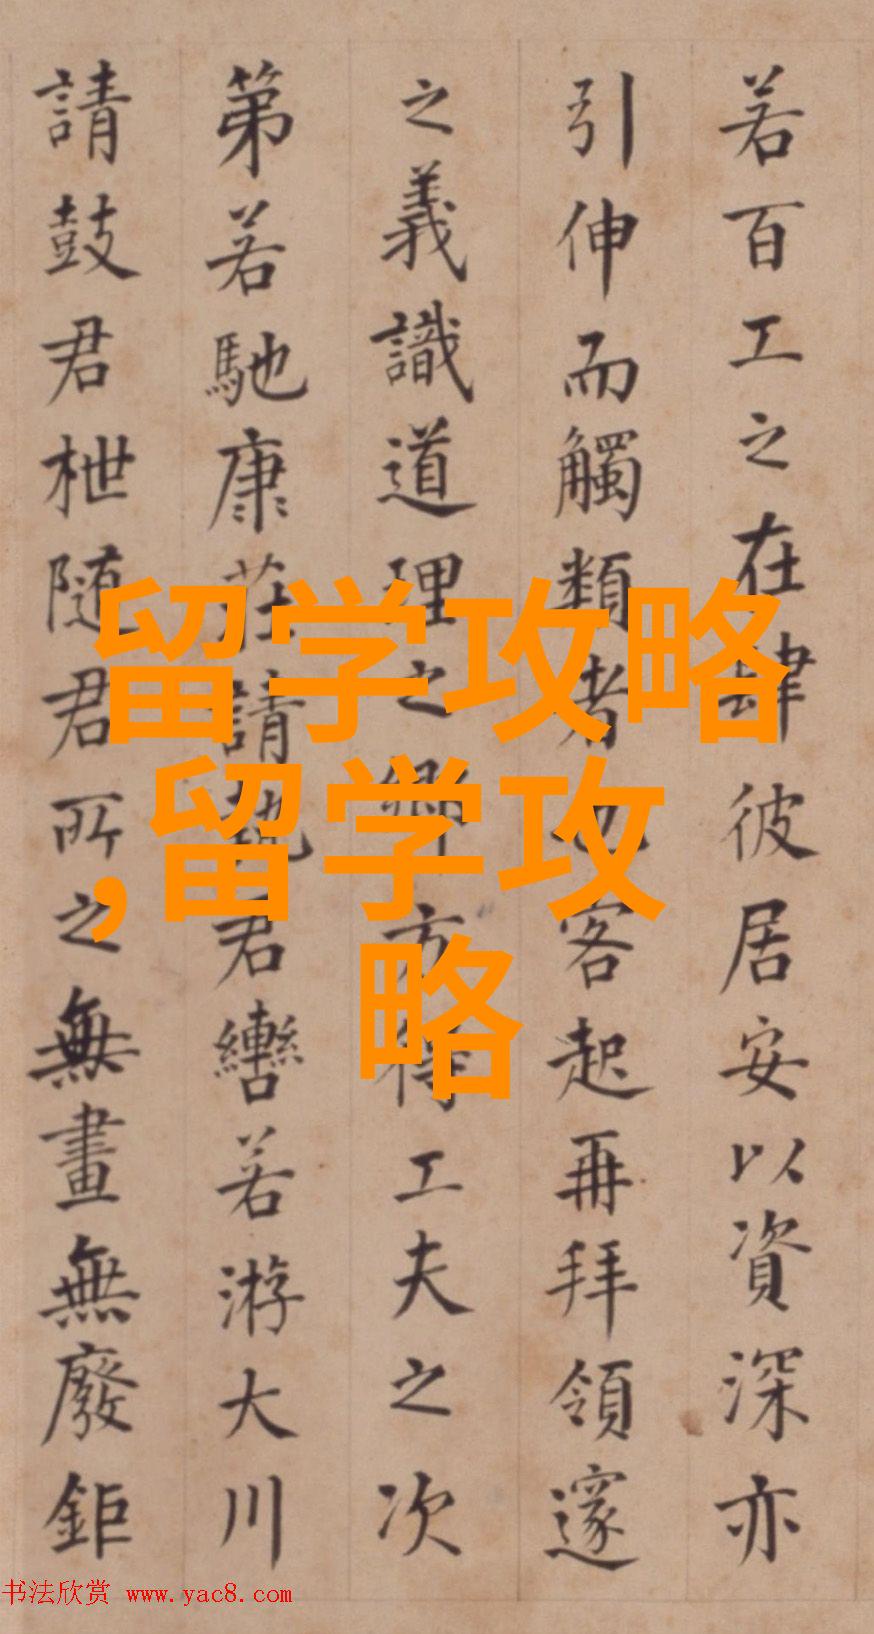 若百工之在肆彼居安以資深亦
引伸而觸類者也客起再拜領邃
之義識道理之鄉方得工夫之次
第若馳康莊請執君轡若游大川
請鼓君枻随君所之無畫無廢鉅
留学攻略
,留学攻
略
书法欣赏 www.yac8.com